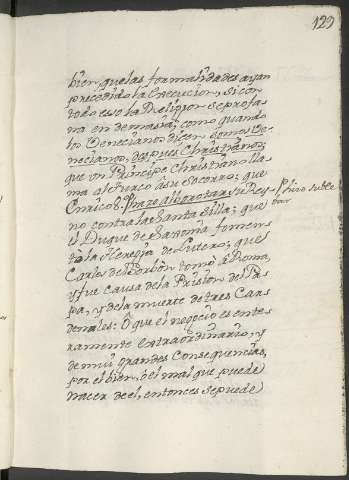 129
bien, que las formalidades ayan
precedido la Execucion, si con
todo esso la Religion se profa
na en demasia; como quando
los Venecianos diçen somos Ve
necianos, despues Christianos;
que un Principe Christiano lla
ma al turco a su socorro; que
Enrico 8. hace alborotar su Rey- / hizo suble
no contra la Santa Silla; que var
el Duque de Saxonia fomen
ta la Heregia de Lutero; que
Carlos de Borbon tomò à Roma,
y fue causa de la Prision del Pa
pa, y de la muerte de tres Car
denales: O que el negocio es ente
ramente extraordinario, y
de mui grandes Consequencias,
por el bien, ò el mal que puede
nacer de el, entonces se puede